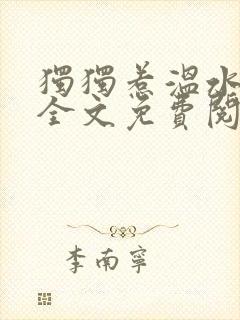 獨獨惹溫水
全文免費閱
李南寧